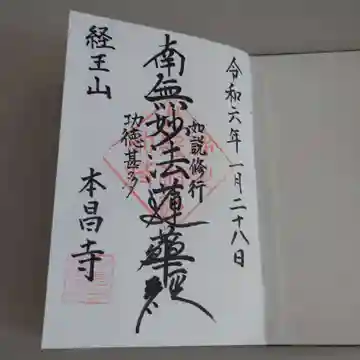 令和六年一月二十八日
如説修行
南無妙法蓮華経
功徳甚多
経王山 本昌寺